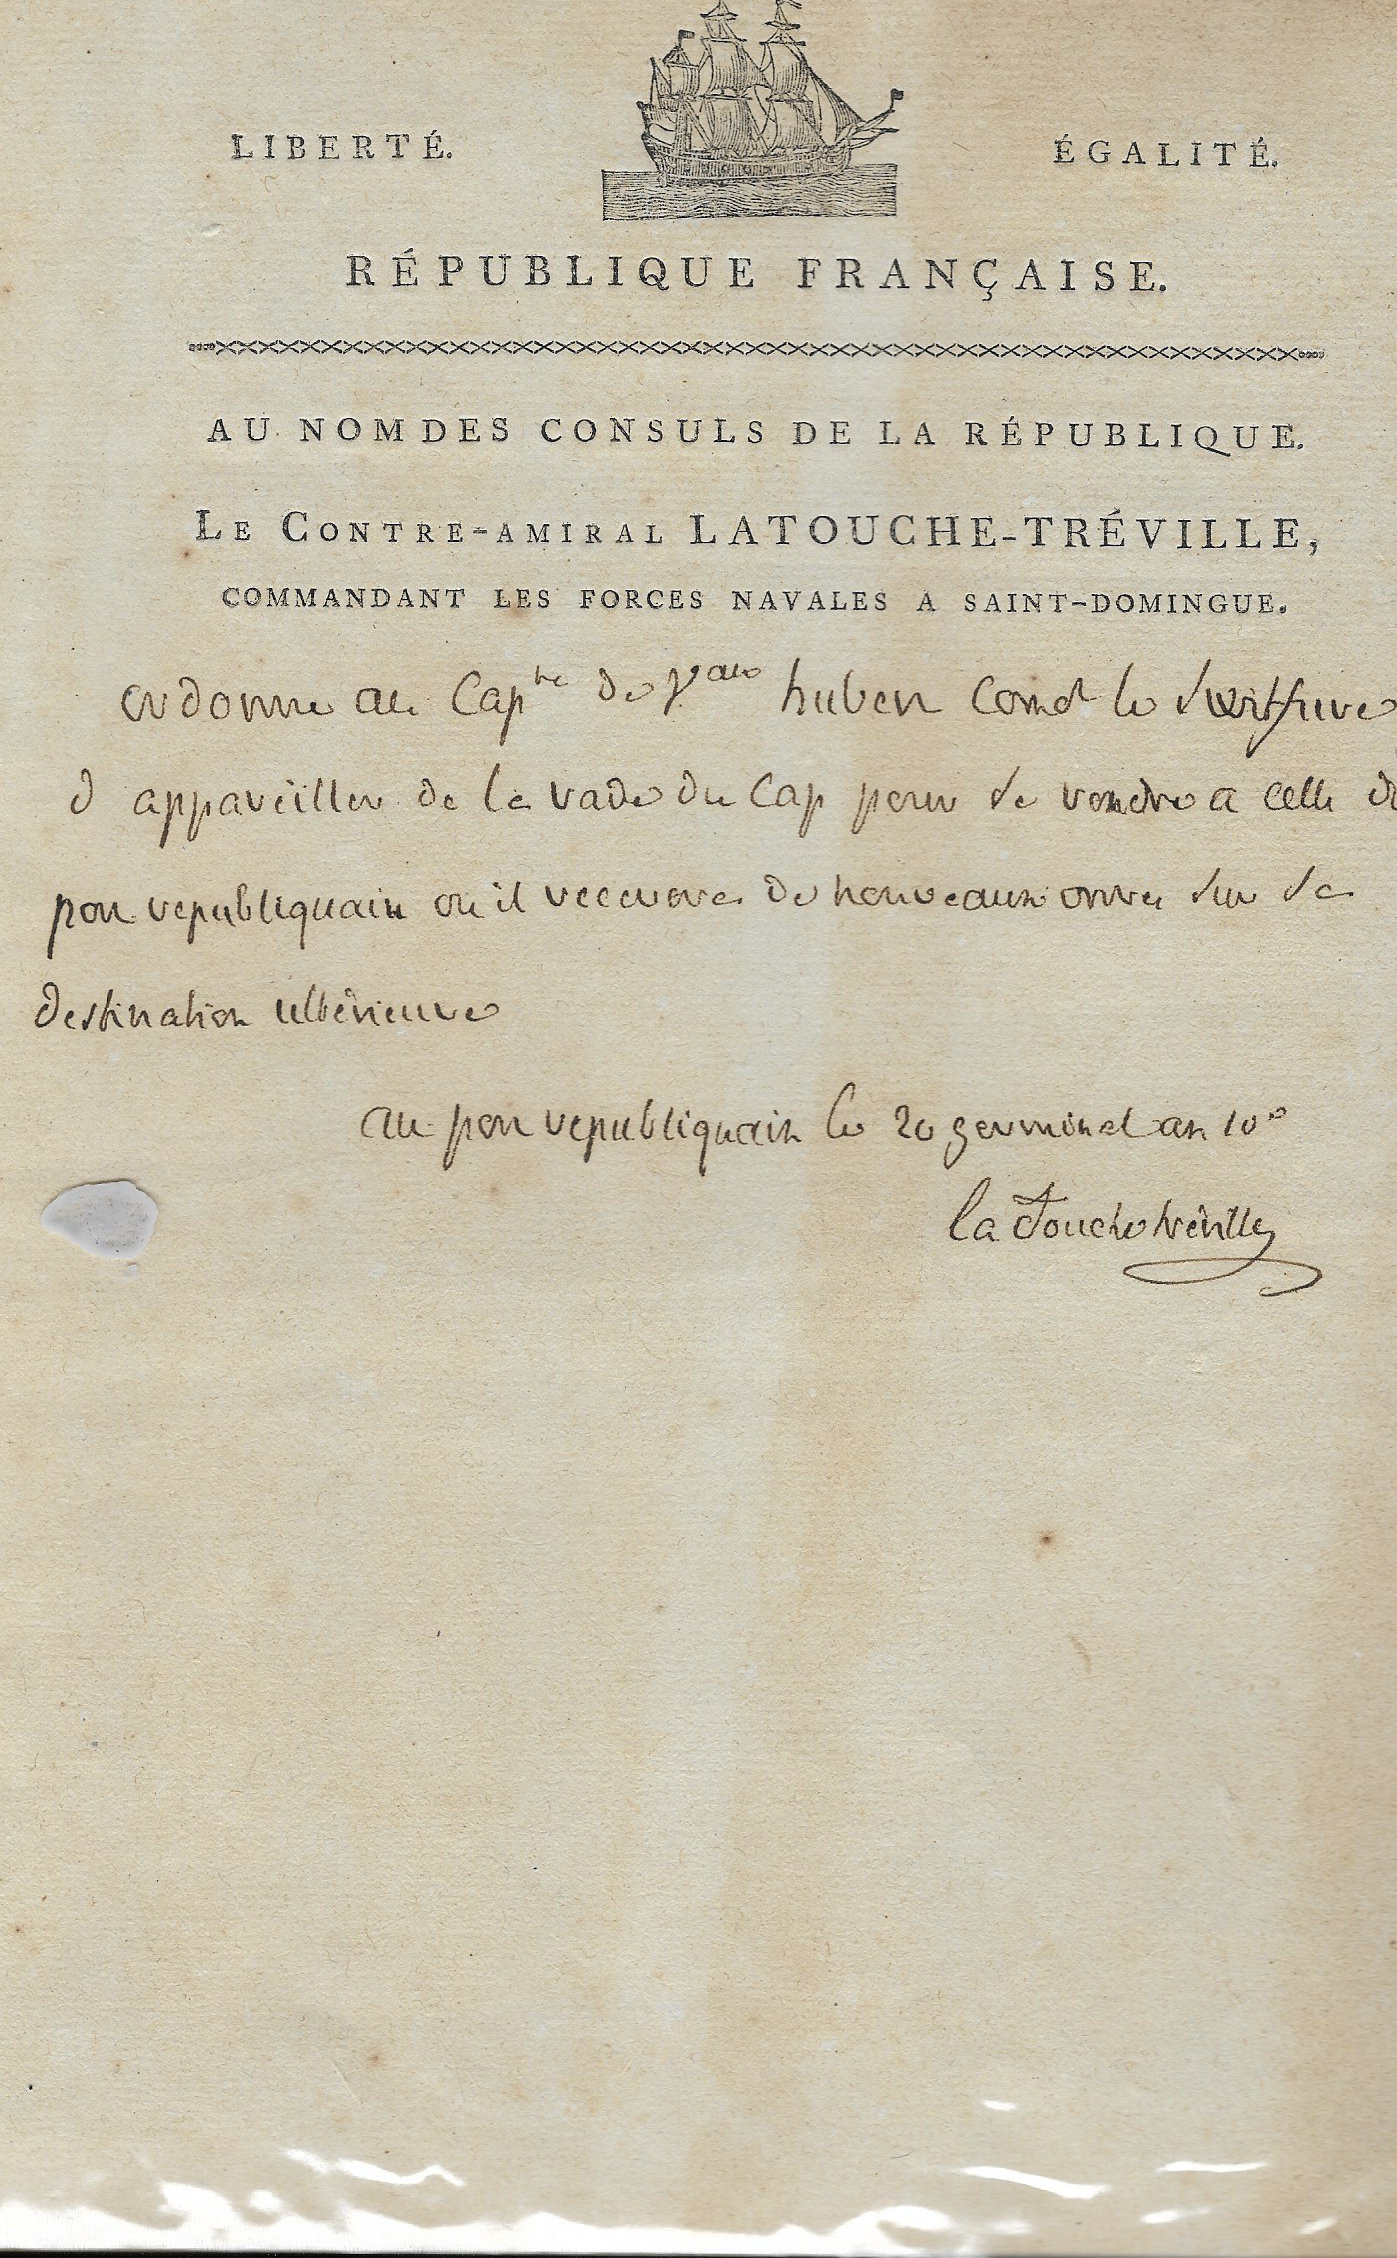 LIBERTÉ. ÉGALITÉ.
RÉPUBLIQUE FRANÇAISE.
AU NOM DES CONSULS DE LA RÉPUBLIQUE.
LE CONTRE-AMIRAL LATOUCHE-TRÉVILLE,
COMMANDANT LES FORCES NAVALES A SAINT-DOMINGUE.
ordonne au Cap^ne de V^eau huber Comdt le Swiftsure
d appareiller de la rade du Cap pour se rendre a celle du
port republiquain ou il recevera de nouveaux ordres sur sa
destination ulterieure
au port republiquain le 20 germinal an 10^e
la Touche tréville